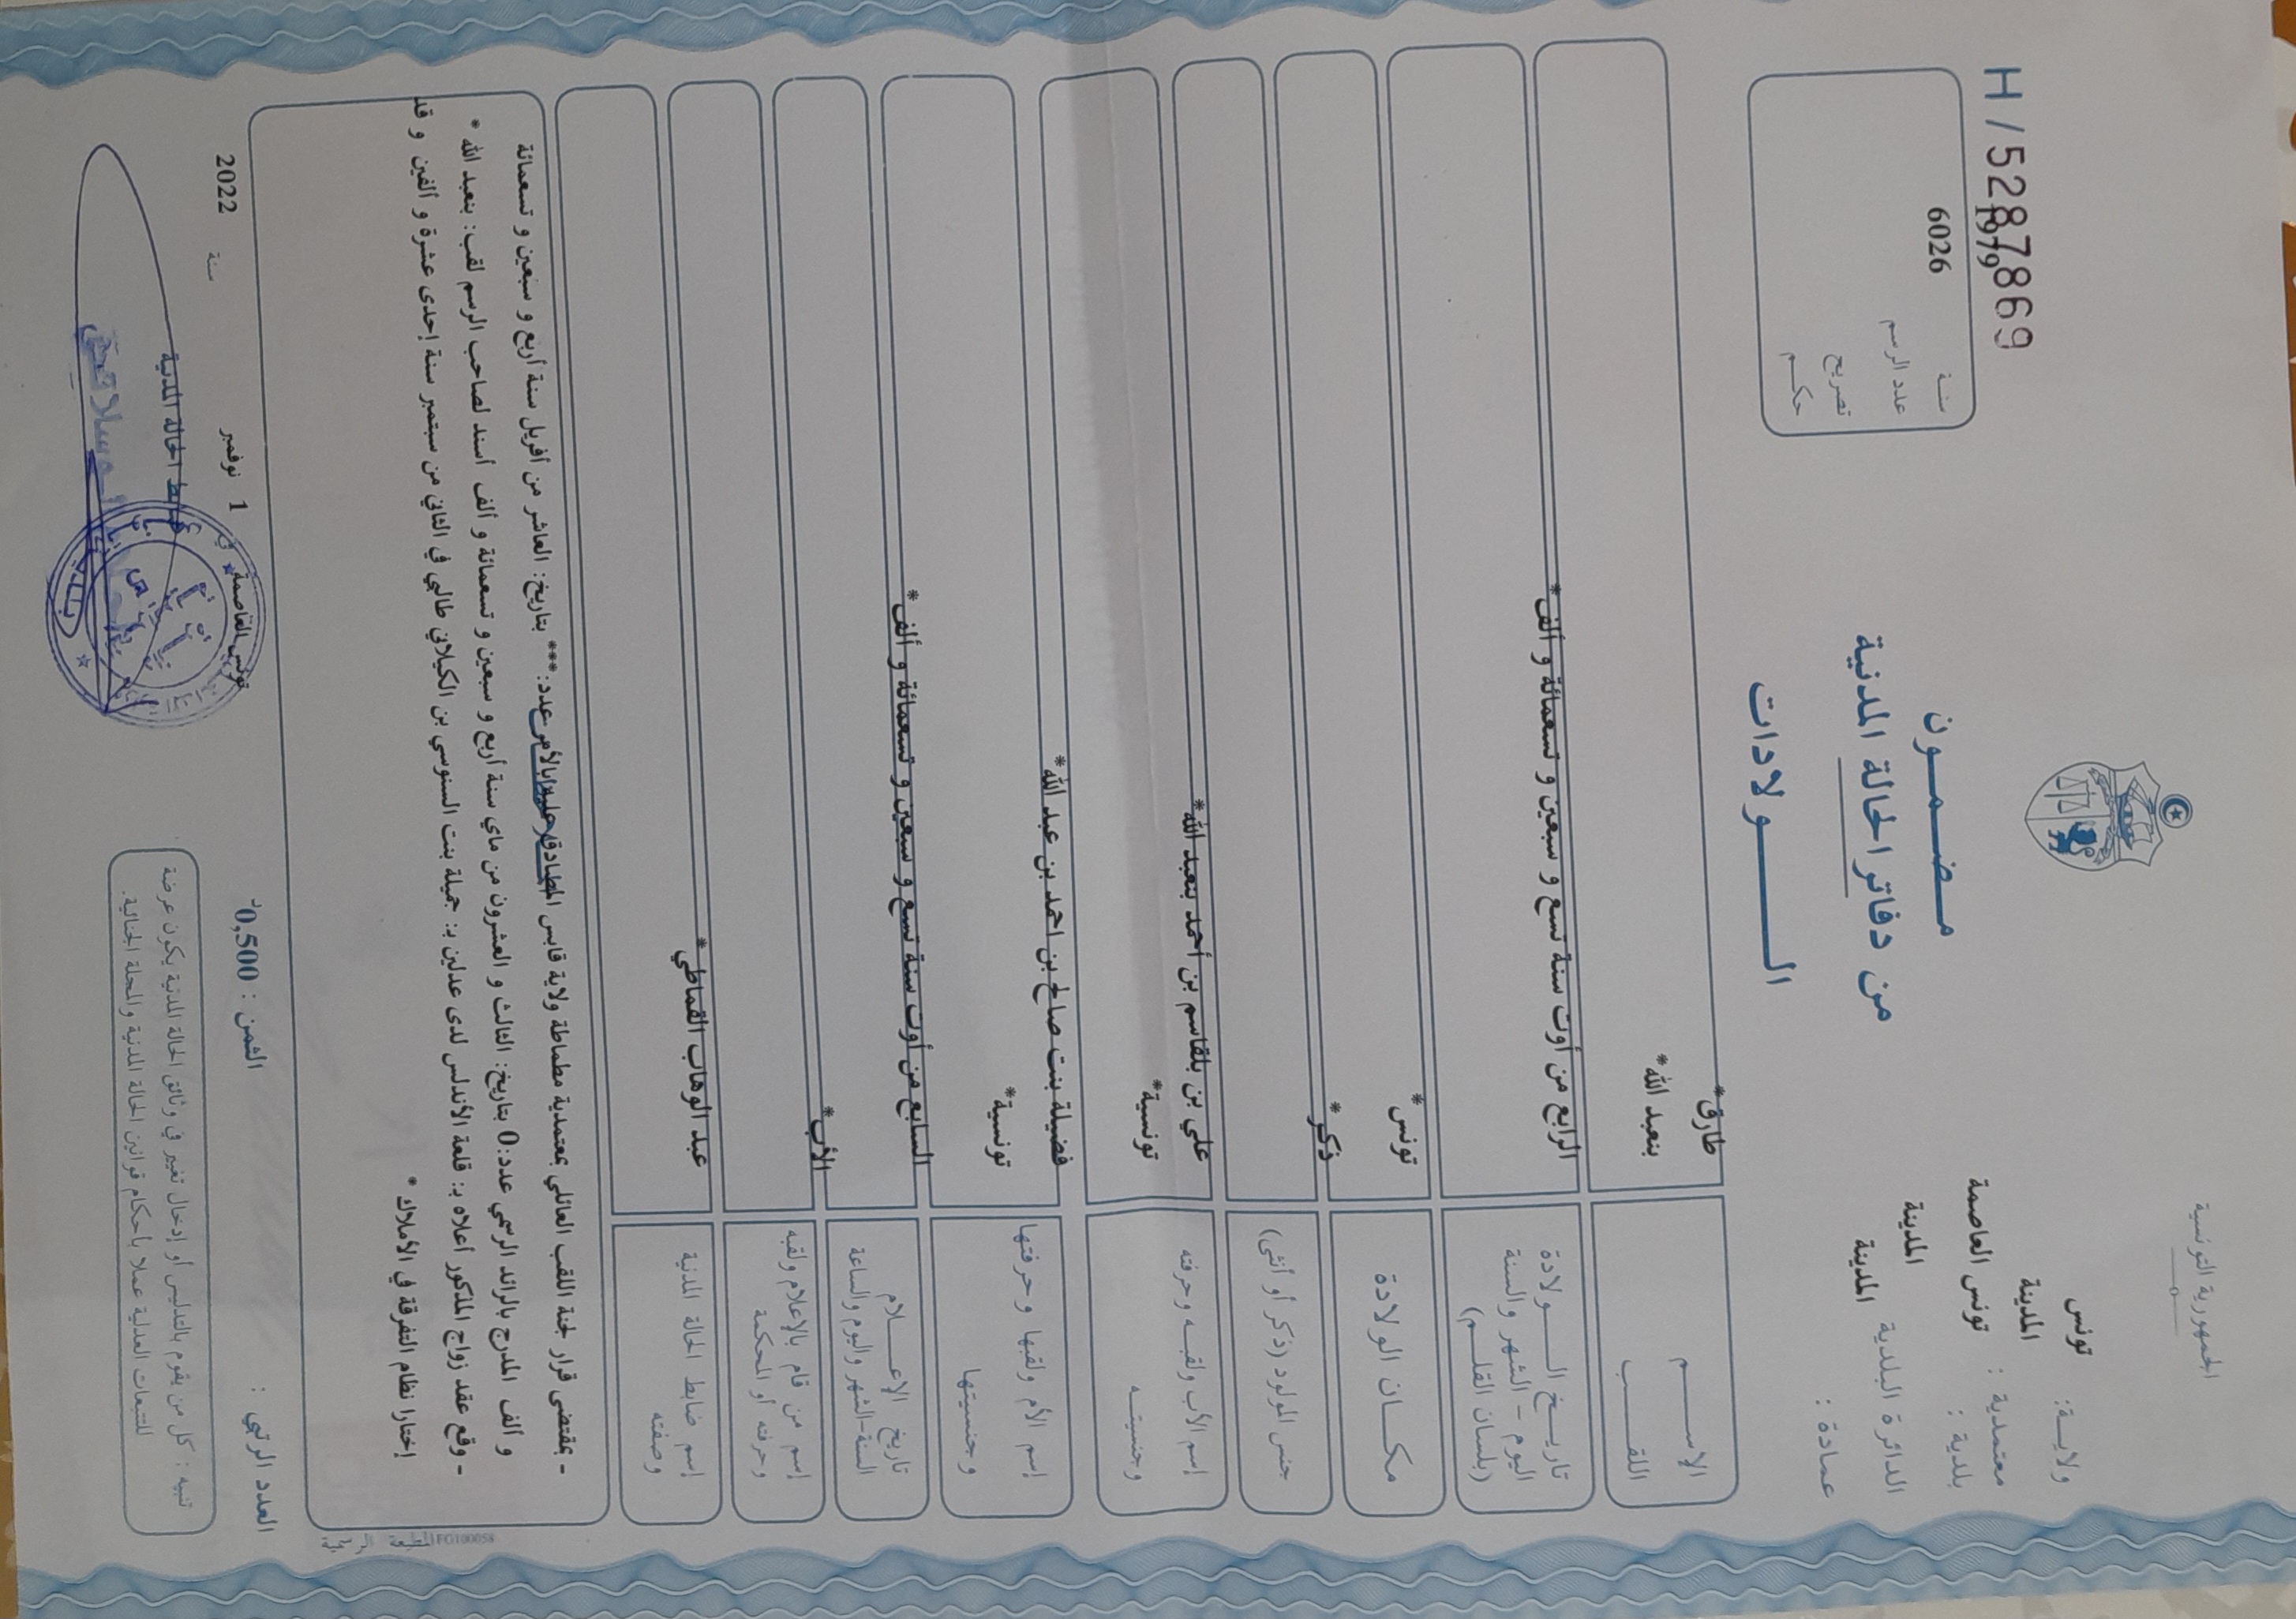 الجمهورية التونسية
ولايـة: تونس
معتمدية : المدينة
بلدية : تونس العاصمة
الدائرة البلدية المدينة
عمادة : المدينة
H/52887869
سنة 1979
عدد الرسم 6026
تصريح
حكم
مـضـمـون
من دفاتر الحالة المدنية
الـــولادات
الإســـم طارق*
اللقـــب بنعبد الله*
تاريـخ الـــولادة
اليوم - الشهر والسنة
(بلسان القلـم)
الرابع من أوت سنة تسع و سبعين و تسعمائة و ألف*
مكـــان الولادة تونس*
جنس المولود (ذكر أو أنثى) ذكر*
إسم الأب ولقبـه وحرفته علي بن بلقاسم بن أحمد بنعبد الله*
وجنسيتــه تونسية*
إسم الأم ولقبها وحرفتها فضيلة بنت صالح بن احمد بن عبد الله*
وجنسيتها تونسية*
تاريخ الإعــلام
السنة-الشهر واليوم والساعة
السابع من أوت سنة تسع و سبعين و تسعمائة و ألف*
إسم من قام بالإعلام ولقبه
وحرفته أو المحكمة
الأب*
إسم ضابط الحالة المدنية
وصفته
عبد الوهاب القماطي*
- بمقتضى قرار لجنة اللقب العائلي بمعتمدية مطماطة ولاية قابس المصادق عليه بالأمر عدد:*** بتاريخ: العاشر من أفريل سنة أربع و سبعين و تسعمائة
و ألف المدرج بالرائد الرسمي عدد:0 بتاريخ: الثالث و العشرون من ماي سنة أربع و سبعين و تسعمائة و ألف أسند لصاحب الرسم لقب: بنعبد الله *
- وقع عقد زواج المذكور أعلاه بـ: قلعة الأندلس لدى عدلين بـ: جميلة بنت السنوسي بن الكيلاني طالبي في الثاني من سبتمبر سنة إحدى عشرة و ألفين و قد
إختارا نظام التفرقة في الأملاك *
العدد الرتبي :
الثمن : 0,500د
تونس العاصمة في 1 نوفمبر سنة 2022
ضابط الحالة المدنية
تنبيه : كل من يقوم بالتدليس أو إدخال تغيير في وثائق الحالة المدنية يكون عرضة
للتتبعات العدلية عملا بأحكام قوانين الحالة المدنية والمجلة الجنائية.
المطبعة الرسمية